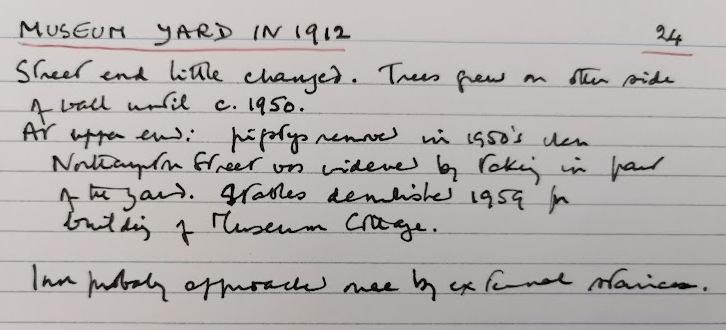 MUSEUM YARD IN 1912 24
Street end little changed. Trees grew on other side
of wall until c. 1950.
At upper end: pigstys removed in 1950's when
Northampton Street was widened by taking in part
of the yard. Stables demolished 1959 for
building of Museum Cottage.
Inn probably approached once by external staircase.